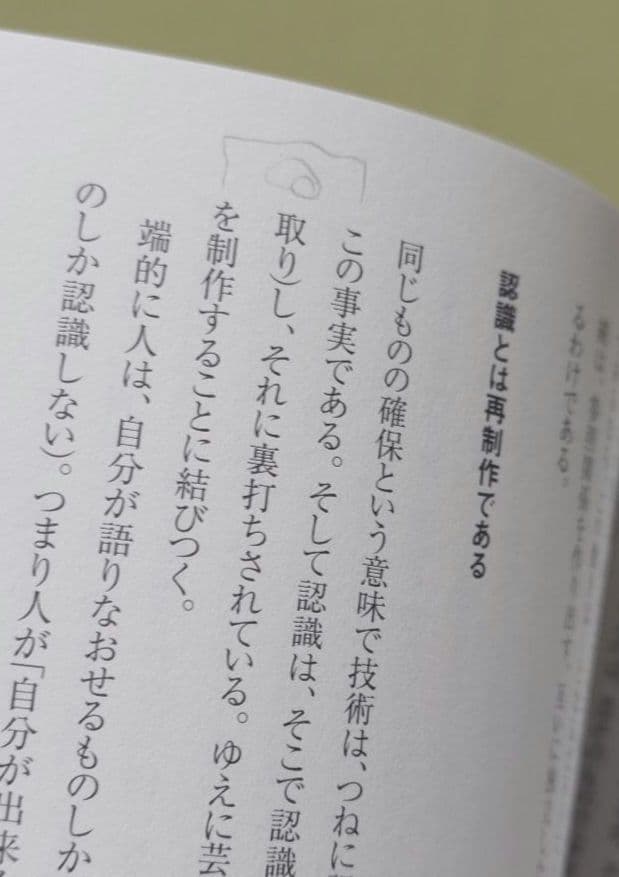 るわけである。
認識とは再制作である
同じものの確保という意味で技術は、つねに
この事実である。そして認識は、そこで認識
取り)し、それに裏打ちされている。ゆえに芸
を制作することに結びつく。
端的に人は、自分が語りなおせるものしか
のしか認識しない)。つまり人が「自分が出来